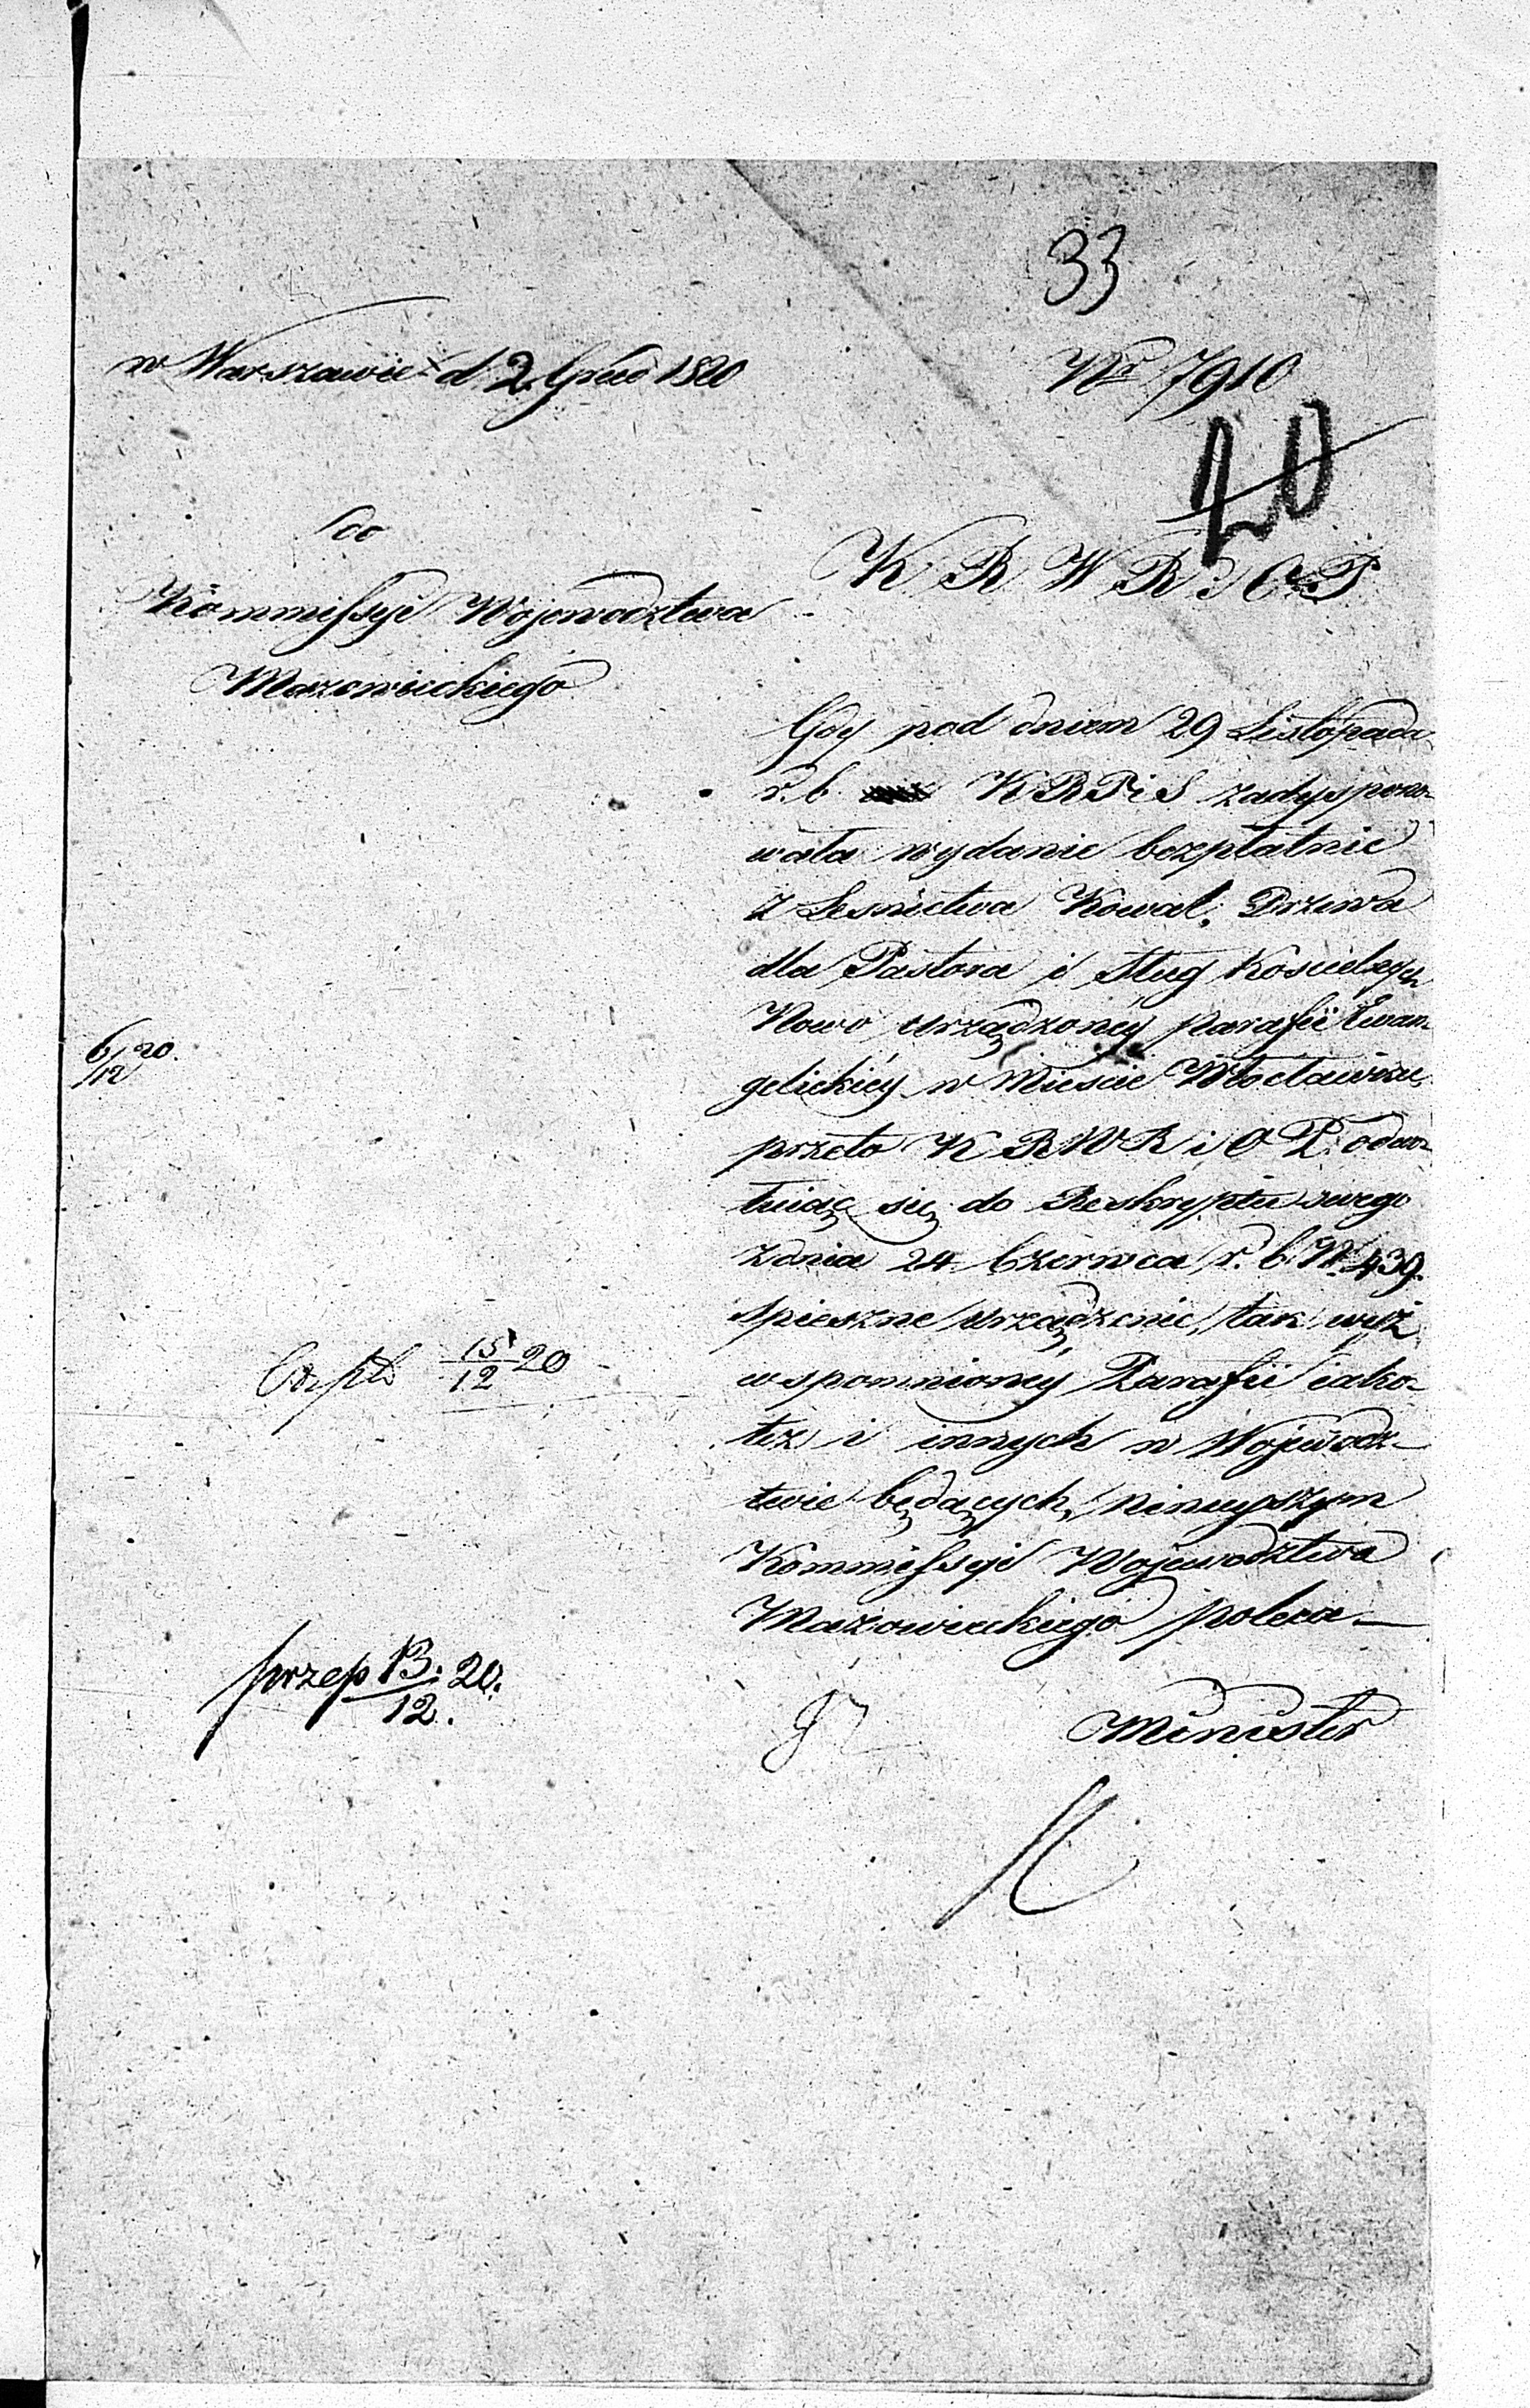 33
w Warszawie d 2 Grud 1820
Nr 7910
20
do
Kommissyi Województwa
Mazowieckiego
K R W R i O P
Gdy pod dniem 29 Listopada
r. b. K R P i S zadyspono-
wała wydanie bezpłatnie
z Lesnictwa Kowal, Drzewa
dla Pastora i Sług Kościelnych
Nowo urządzoney parafii Ewan-
gelickiéy w Mieście Włocławku,
przeto K R W R i O P. odwo-
łuiąc się do Reskryptu swego
z dnia 24 Czerwca r. b. N. 439.
spieszne urządzenie, tak wyż
wspomnioney Parafii iako-
też i innych w Wojewódz-
twie będących, ninieyszym
Kommissyi Województwa
Mazowieckiego poleca—
Minister
6/12 20.
Exp 15/12 20
przep 13/12. 20.